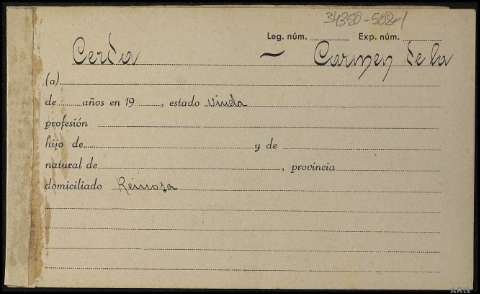 34350-502-1
Leg. núm. Exp. núm.
Cerda – Carmen de la
(a)
de años en 19 , estado viuda
profesión
hijo de y de
natural de , provincia
domiciliado Reinosa